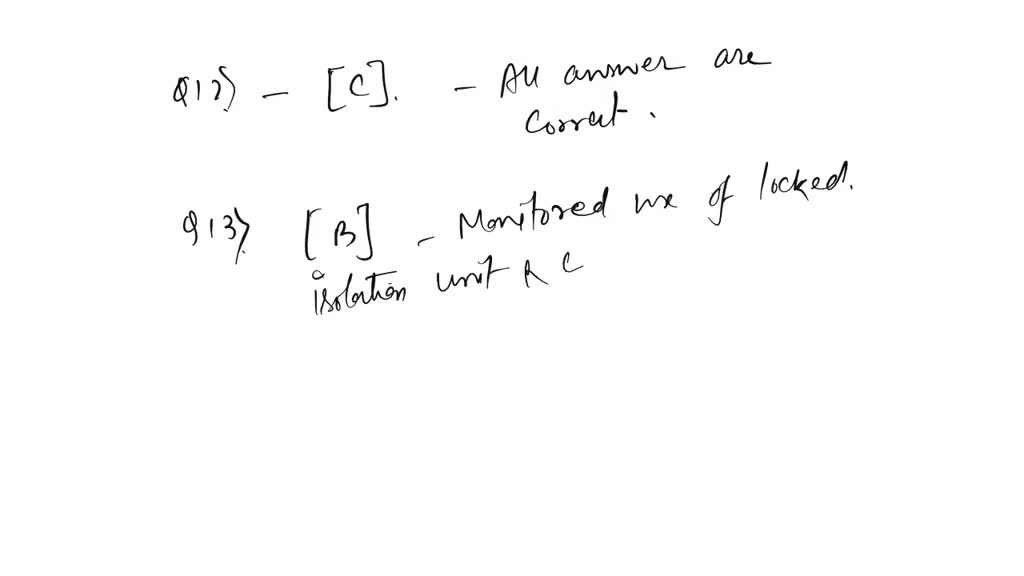 Q12) - [C]. - All answer are
correct.
Q13) [B] - Monitored use of locked.
isolation unit